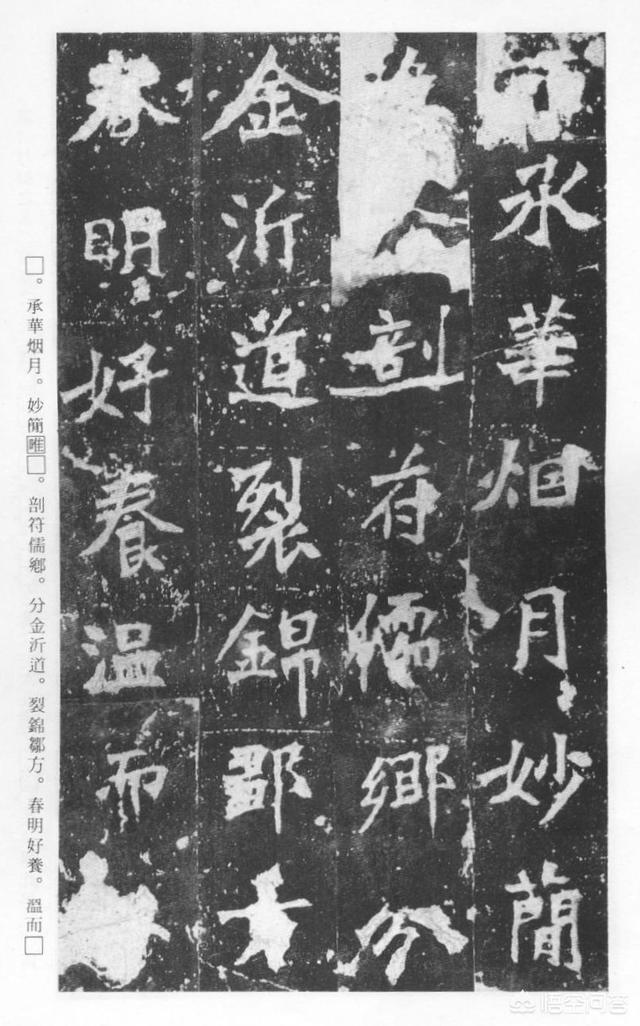 承華烟月妙簡
剖符儒鄉分
金沂道裂錦鄒方
春明好養温而
□。承華烟月。妙簡唯□。剖符儒鄉。分金沂道。裂錦鄒方。春明好養。溫而□
悟空问答